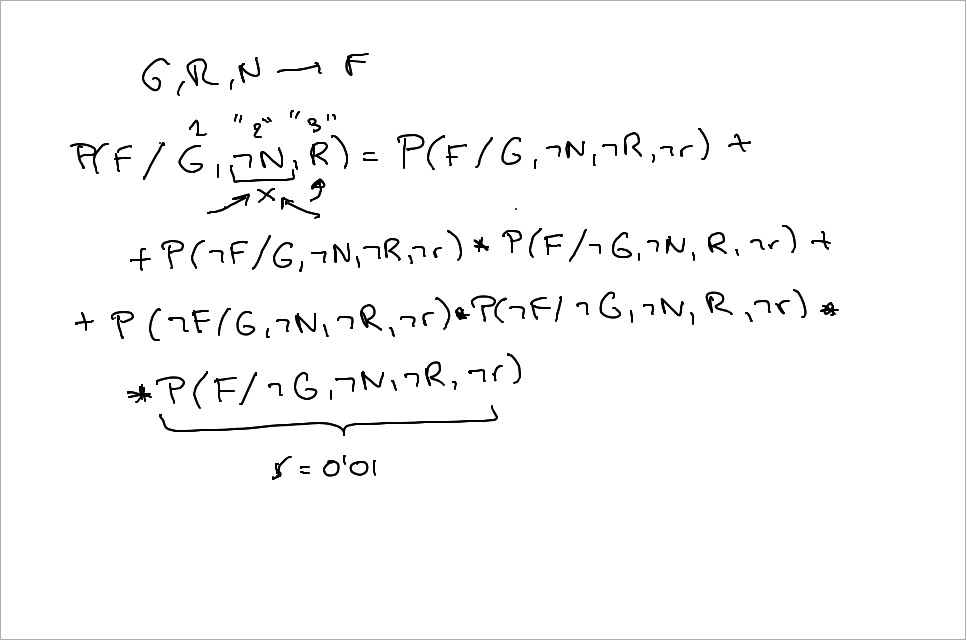 G,R,N → F
1 "2" "3"
P(F/G,¬N,R) = P(F/G,¬N,¬R,¬r) +
x
+ P(¬F/G,¬N,¬R,¬r) * P(F/¬G,¬N,R,¬r) +
+ P(¬F/G,¬N,¬R,¬r) * P(¬F/¬G,¬N,R,¬r) *
* P(F/¬G,¬N,¬R,¬r)
r = 0'01